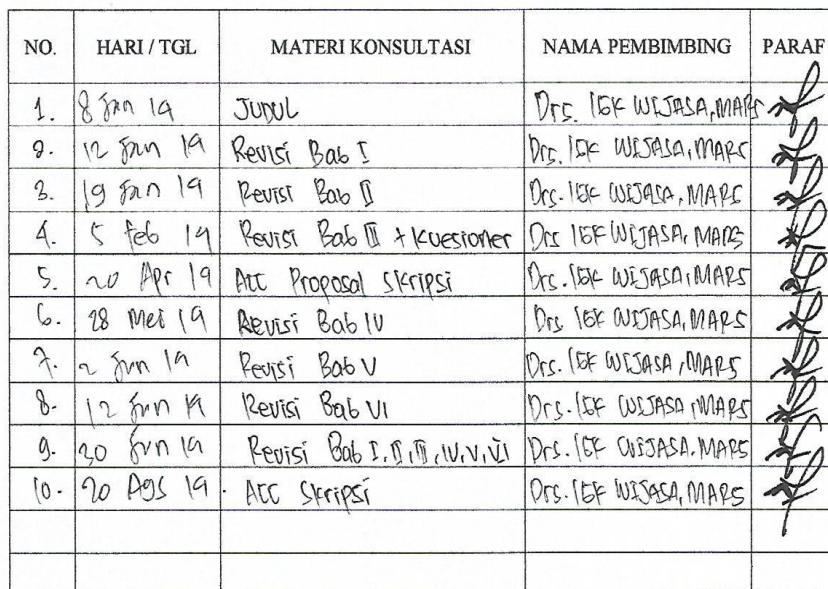 NO. HARI / TGL MATERI KONSULTASI NAMA PEMBIMBING PARAF
1. 8 Jan 19 JUDUL Drs. IGK WIJASA, MARS
2. 12 Jan 19 Revisi Bab I Drs. IGK WIJASA, MARS
3. 19 Jan 19 Revisi Bab II Drs. IGK WIJASA, MARS
4. 5 Feb 19 Revisi Bab III + Kuesioner Drs IGK WIJASA, MARS
5. 20 Apr 19 Acc Proposal Skripsi Drs. IGK WIJASA, MARS
6. 28 Mei 19 Revisi Bab IV Drs IGK WIJASA, MARS
7. 2 Jun 19 Revisi Bab V Drs. IGK WIJASA, MARS
8. 12 Jun 19 Revisi Bab VI Drs. IGK WIJASA, MARS
9. 30 Jun 19 Revisi Bab I, II, III, IV, V, VI Drs. IGK WIJASA. MARS
10. 20 Ags 19. Acc Skripsi Drs. IGK WIJASA, MARS